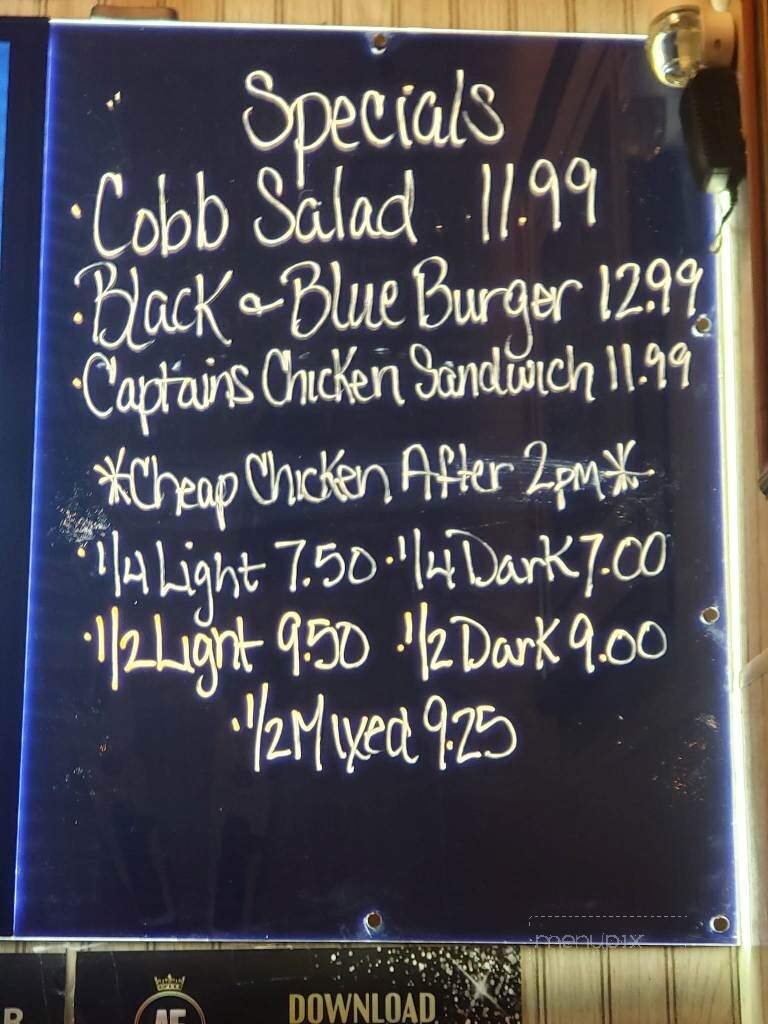 Specials
• Cobb Salad 11.99
• Black & Blue Burger 12.99
• Captains Chicken Sandwich 11.99
*Cheap Chicken After 2pm*
• 1/4 Light 7.50 • 1/4 Dark 7.00
• 1/2 Light 9.50 • 1/2 Dark 9.00
• 1/2 Mixed 9.25
menupix
DOWNLOAD